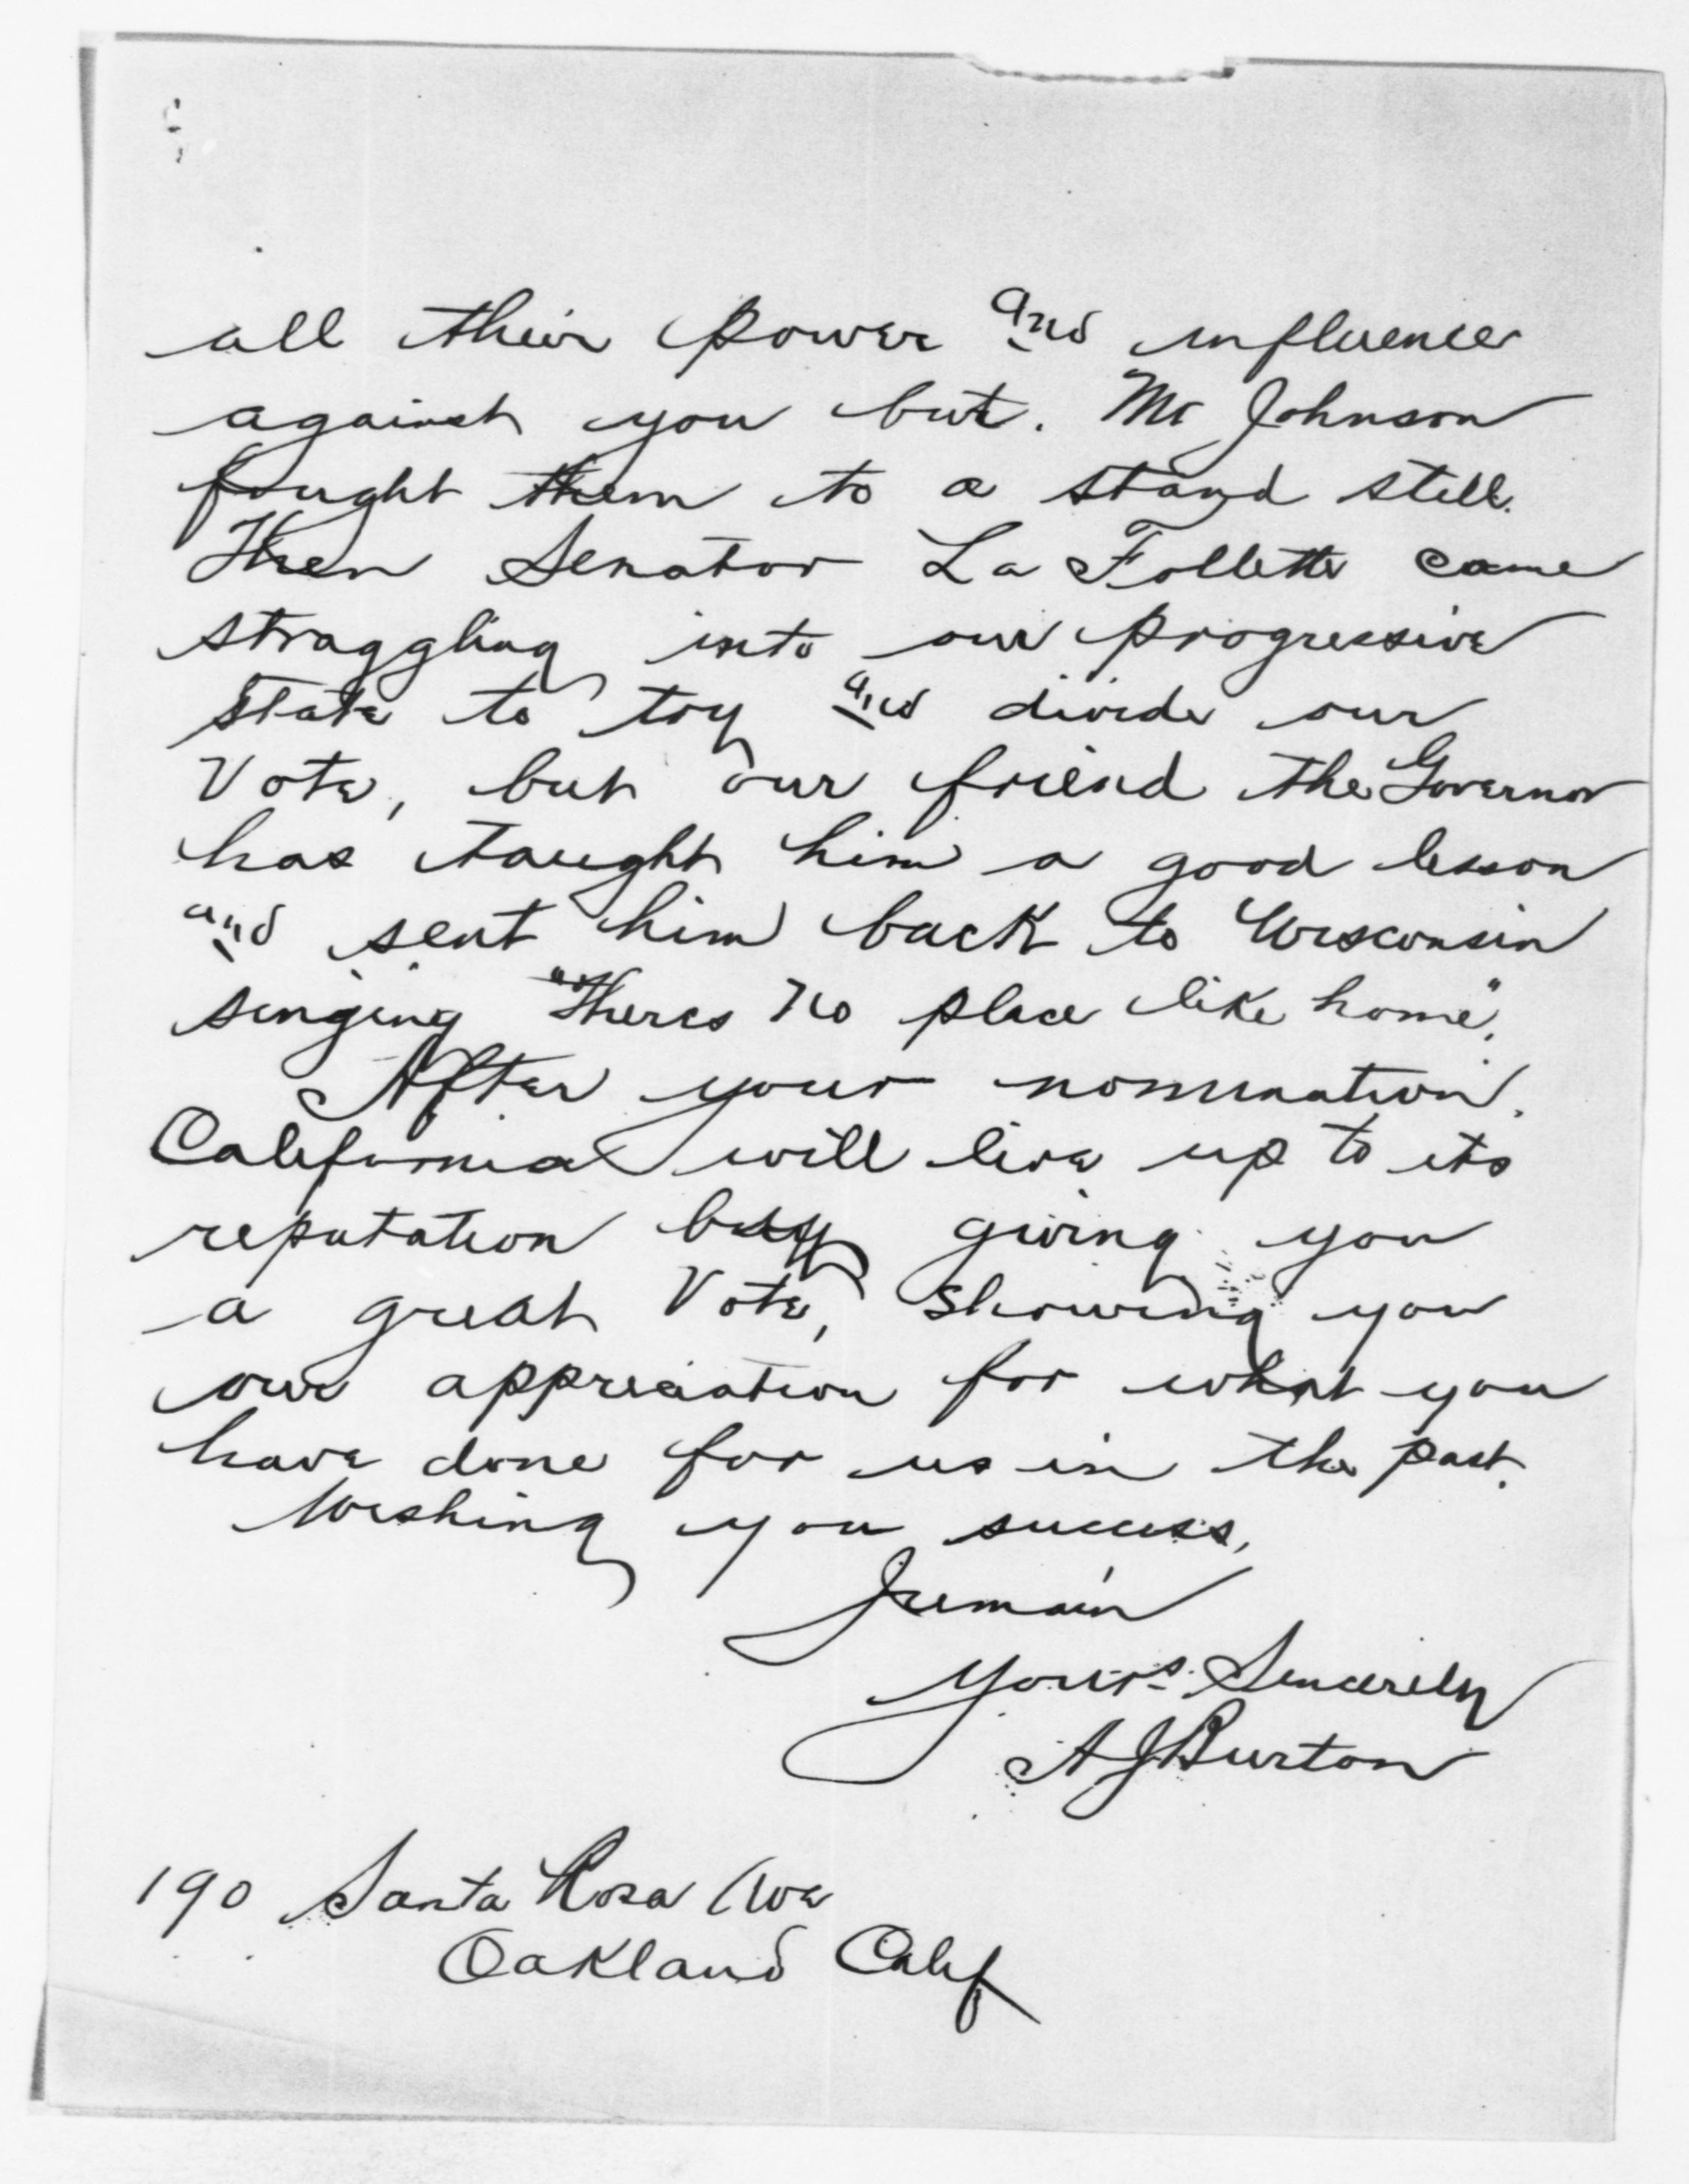 all their power and influence
against you but. Mr Johnson
fought them to a stand still.
Then Senator La Follette came
straggling into our progressive
state to try and divide our
Vote, but our friend the Governor
has taught him a good lesson
and sent him back to Wisconsin
singing "Theres no place like home".
After your nomination.
California will live up to its
reputation by giving you
a great Vote, showing you
our appreciation for what you
have done for us in the past.
Wishing you success,
I remain
Yours Sincerely
A J Burton
190 Santa Rosa Ave
Oakland Calif